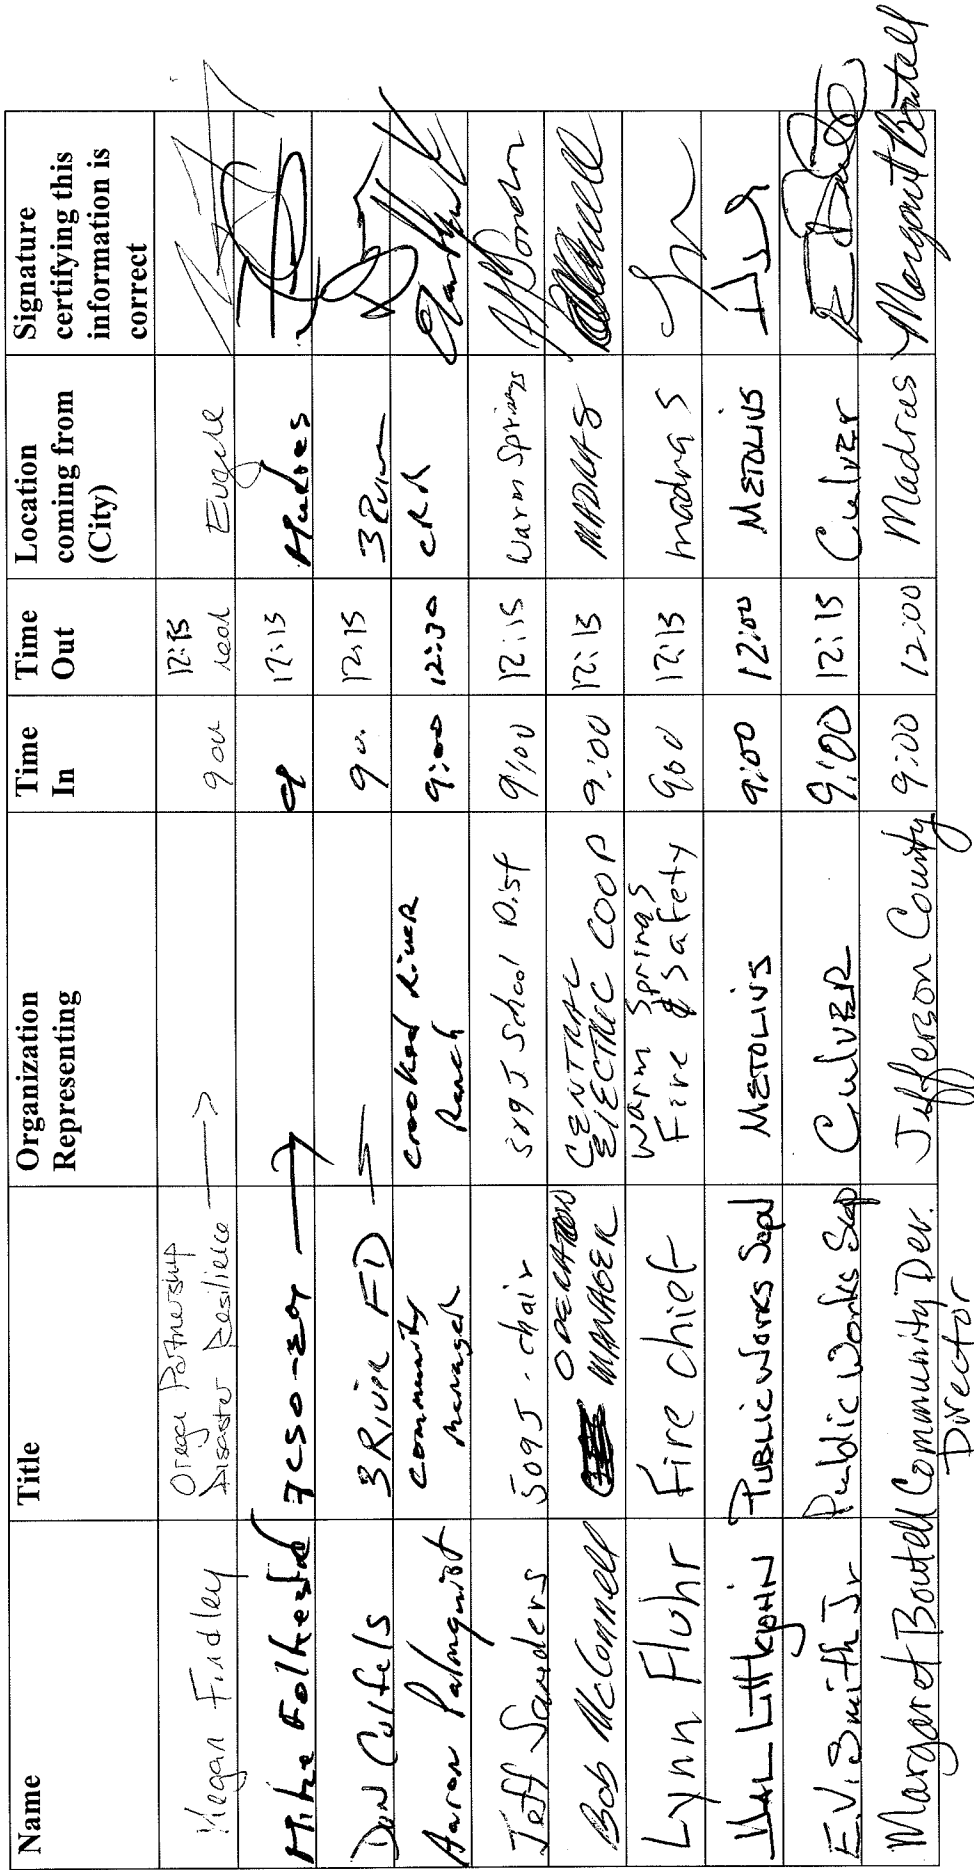 Name Title Organization Representing Time In Time Out Location coming from (City) Signature certifying this information is correct
Megan Findley Oregon Partnership Disaster Resilience → 900 12:15 Eugene
Mike 9 12:15 Madras
Don 3 River FD 9 12:15 3 River
Aaron Palmquist Community Manager Crooked River Ranch 9:00 12:30 CRR
Jeff Sanders 509J - chair 509J School Dist 9:00 12:15 Warm Springs
Bob McConnell OPERATION MANAGER CENTRAL ELECTRIC COOP 9:00 12:15 MADRAS
Lynn Fluhr Fire chief Warm Springs Fire & Safety 900 12:15 madras
LittleJOHN PUBLIC WORKS Supt METOLIUS 9:00 12:00 METOLIUS
E.V. Smith Jr Public Works Sup CULVER 9:00 12:15 Culver
Margaret Boutell Community Dev. Director Jefferson County 9:00 12:00 Madras Margaret Boutell